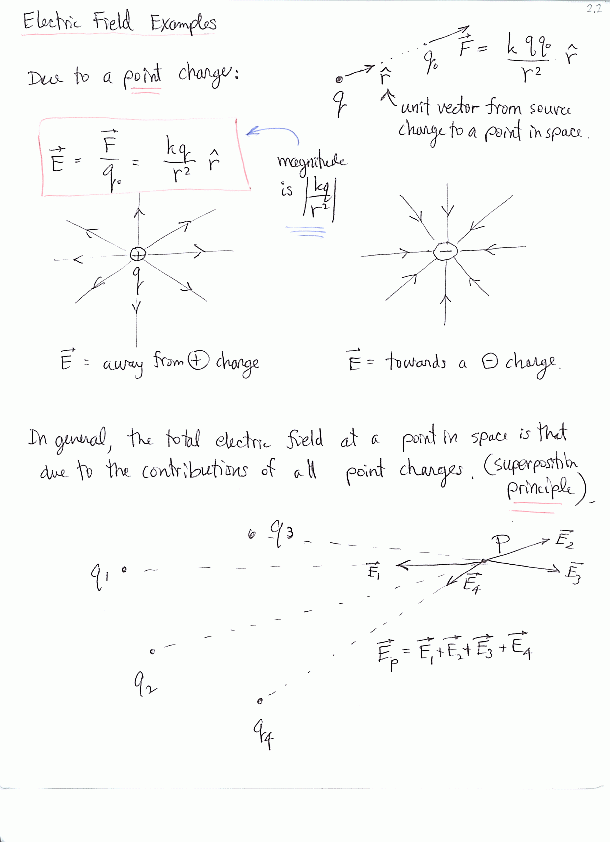 2.2
Electric Field Examples
Due to a point charge:
F⃗ = k q q₀ / r² r̂
q r̂ q₀
unit vector from source
charge to a point in space.
E⃗ = F⃗ / q₀ = kq / r² r̂
magnitude
is |kq / r²|
+ −
q
E⃗ = away from ⊕ charge
E⃗ = towards a ⊖ charge.
In general, the total electric field at a point in space is that
due to the contributions of all point charges. (superposition
principle).
q₃ P E⃗₂
q₁ E⃗₁ E⃗₄ E⃗₃
E⃗ₚ = E⃗₁ + E⃗₂ + E⃗₃ + E⃗₄
q₂
q₄